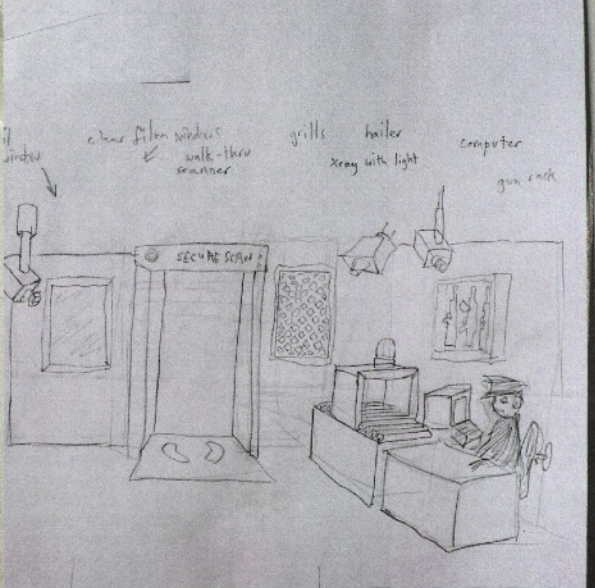 clear film windows
window
walk-thru
scanner
grills
hailer
xray with light
computer
gun rack
SECURE SCAN